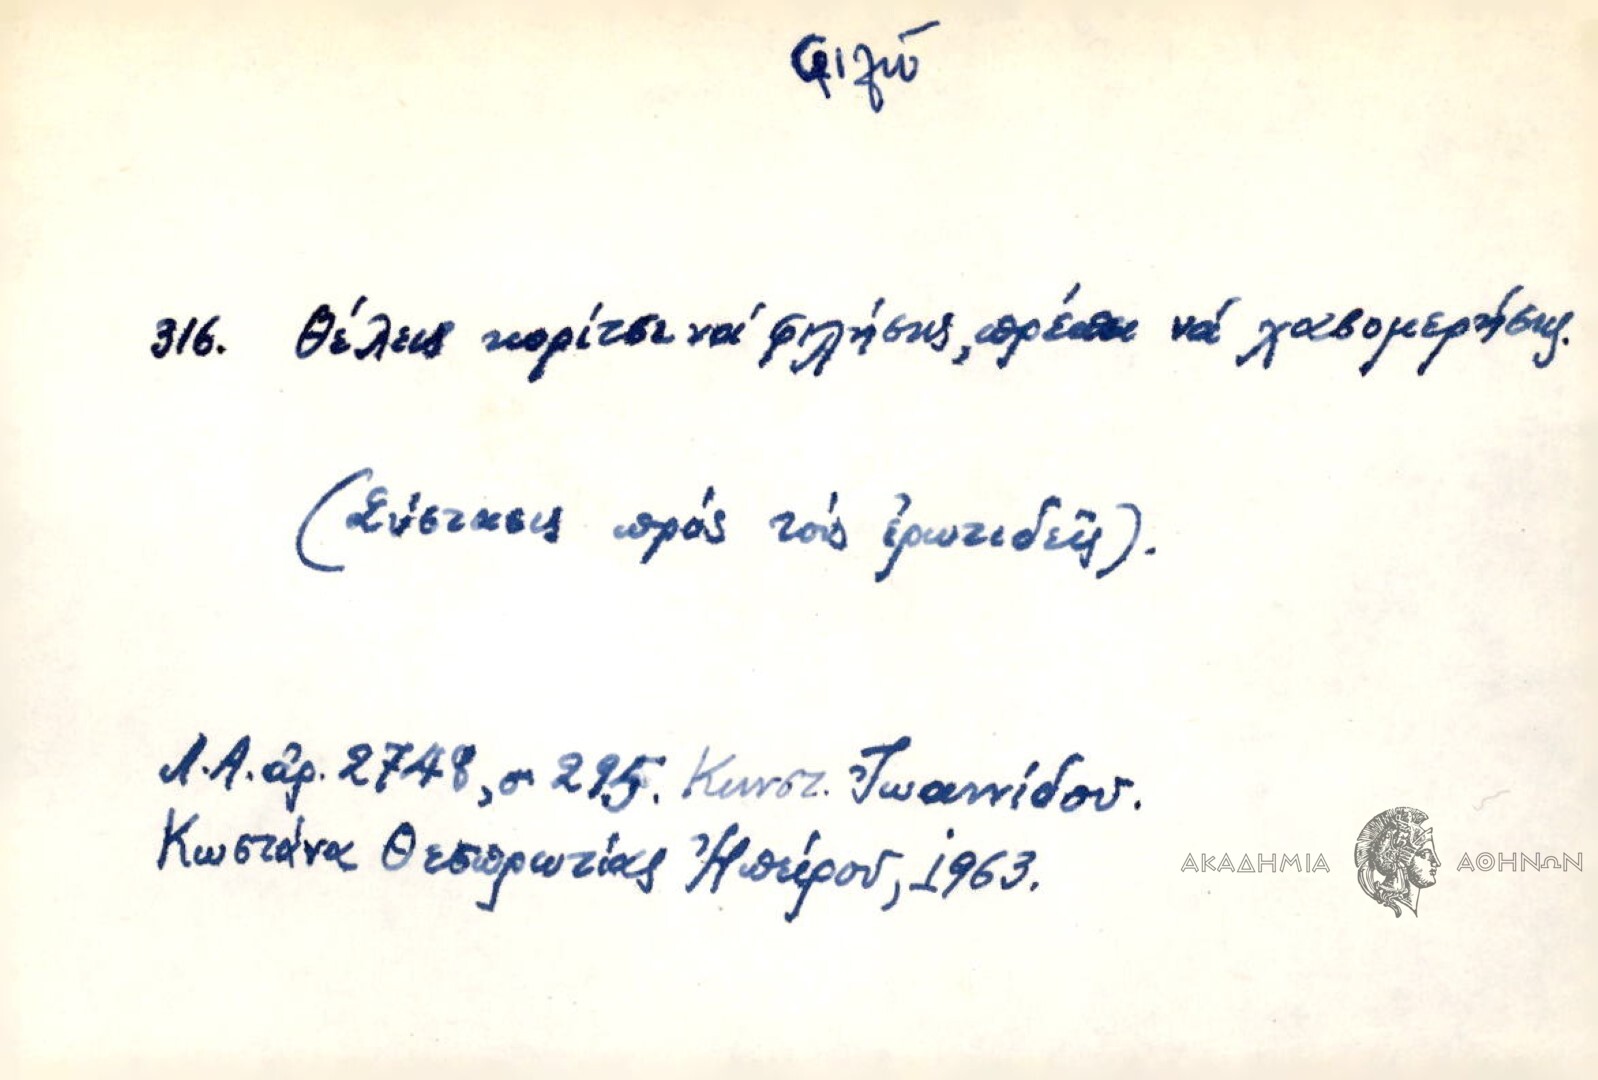 Φιλῶ
316. Θέλεις κορίτσι νά φιλήσης, πρέπει νά χασομερήσης.
(Σύστασις πρός τούς ἐρωτιδεῖς).
Λ.Α. ἀρ. 2748, σ. 295. Κωνστ. Ἰωαννίδου.
Κωστάνα Θεσπρωτίας Ἠπείρου, 1963.
ΑΚΑΔΗΜΙΑ ΑΘΗΝΩΝ